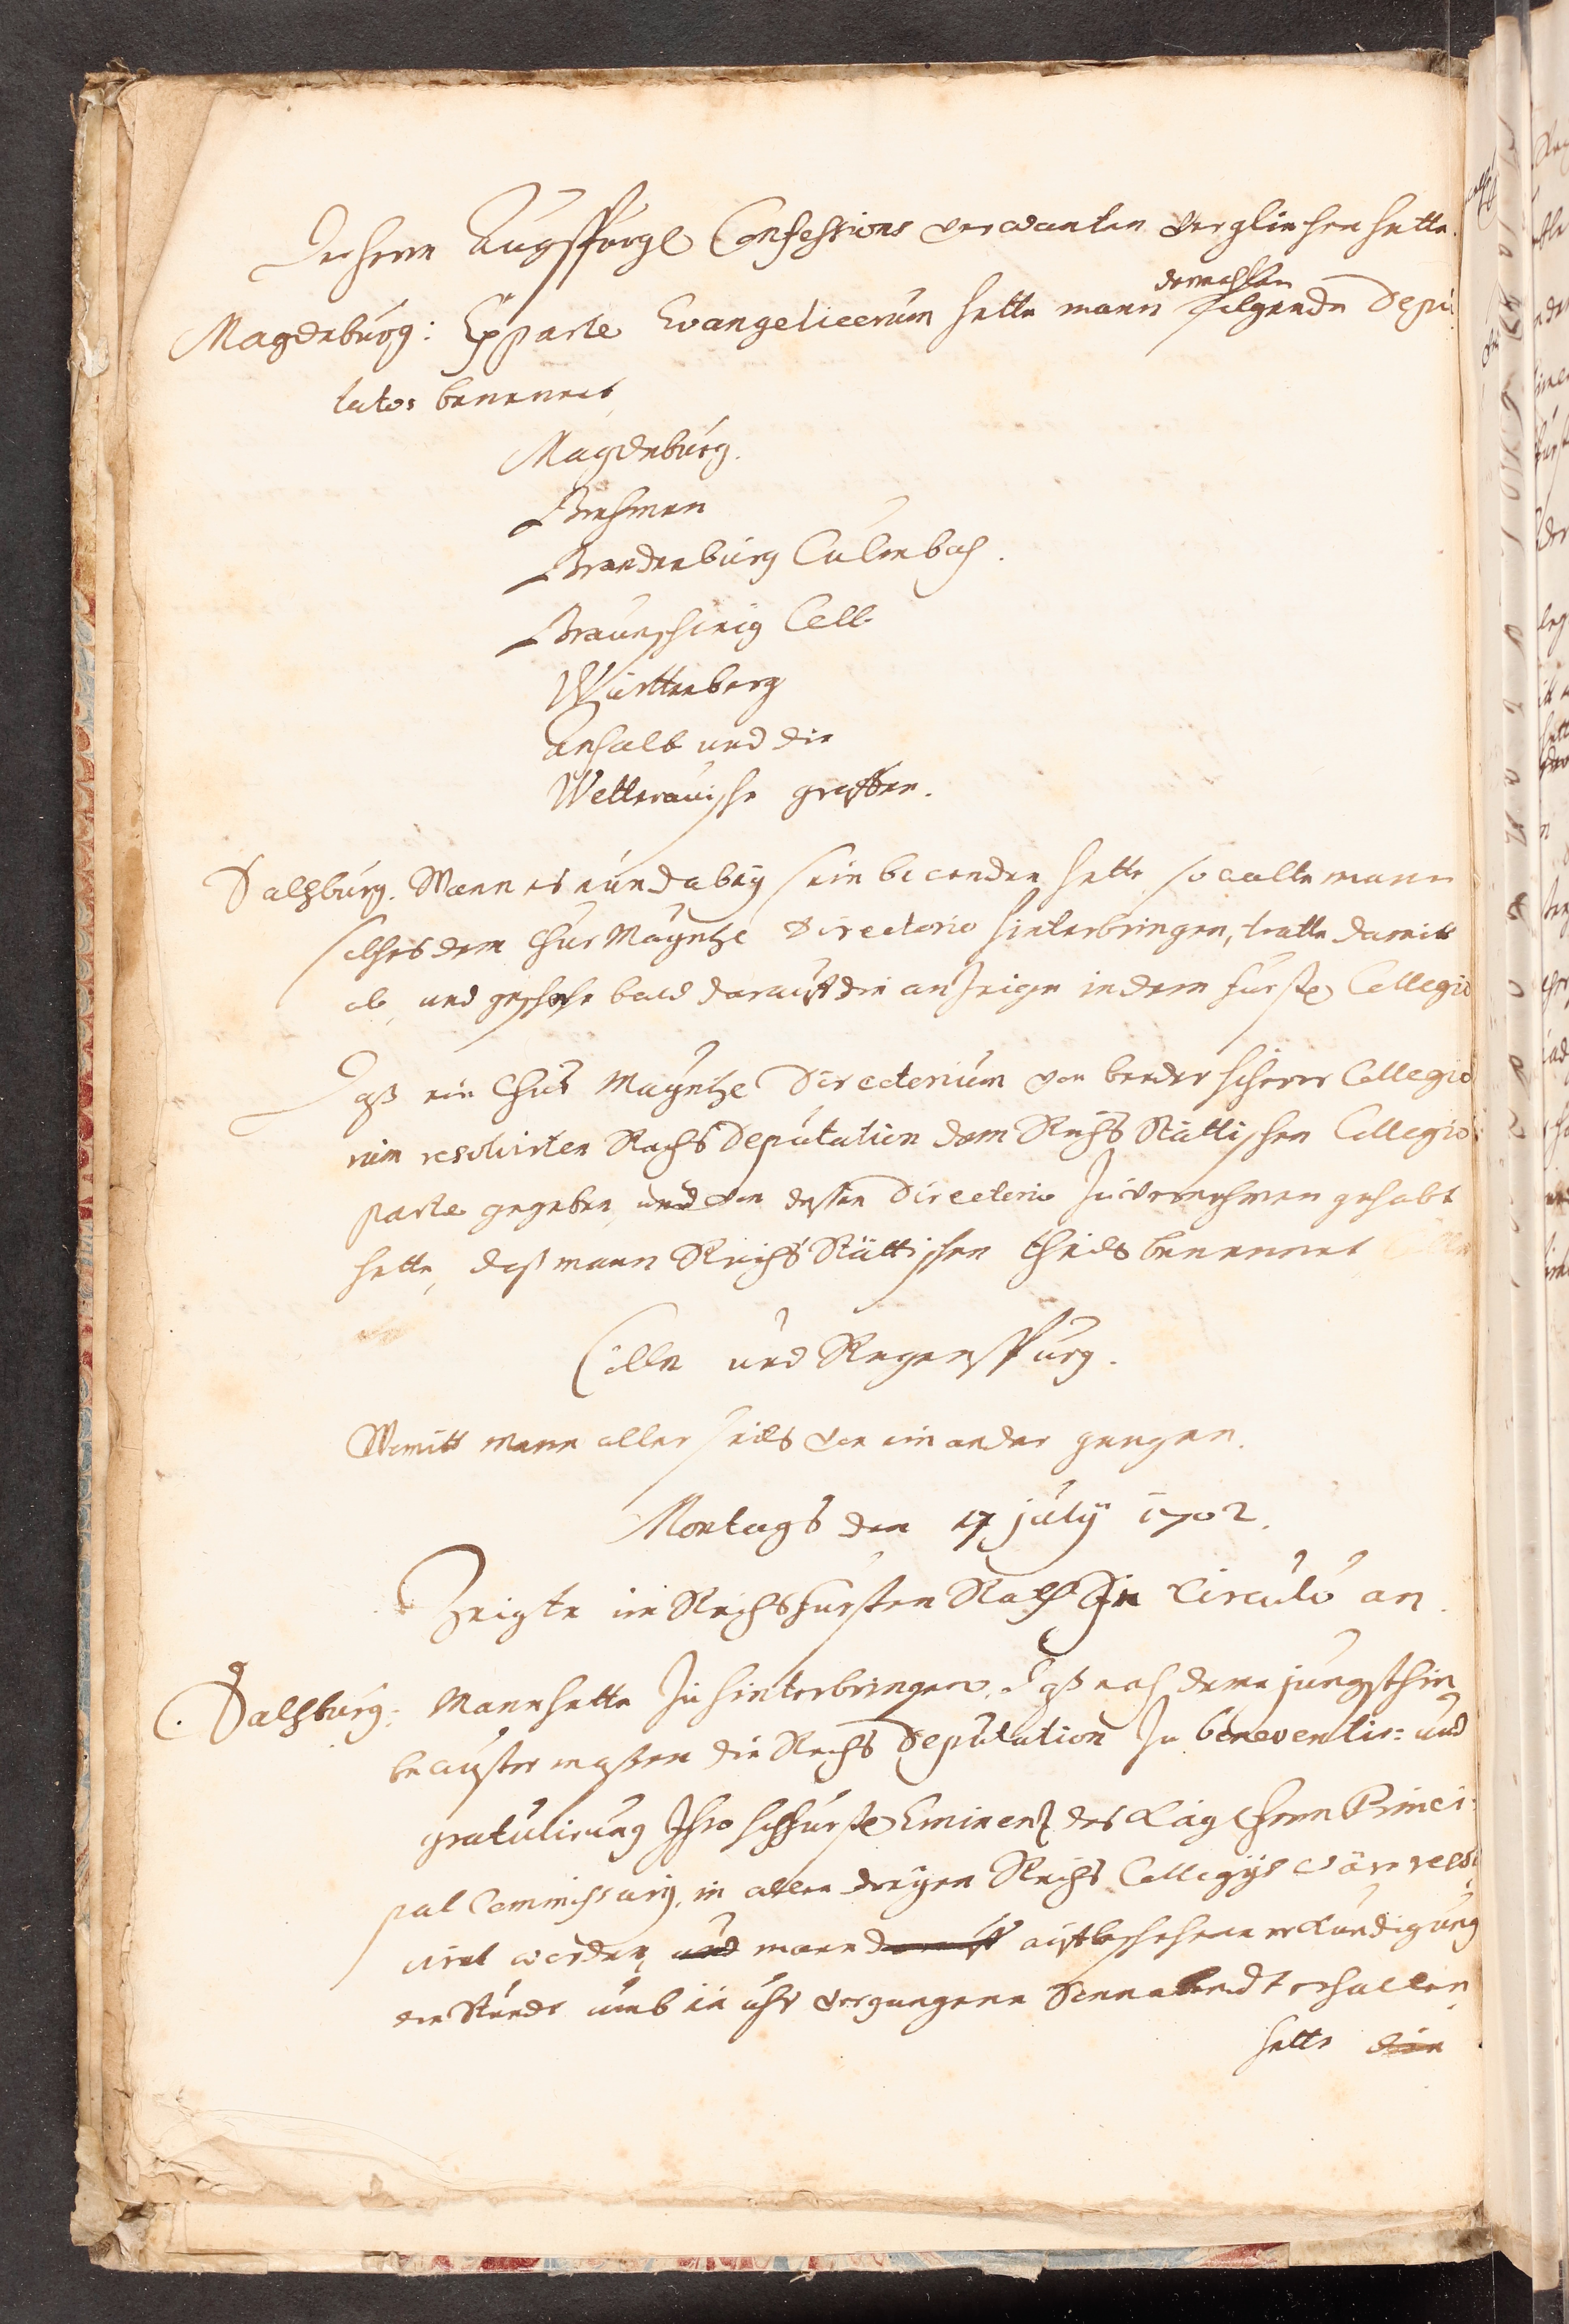 der herrn Augspurg: Confessions verwanten verglichen hette.
dermahlen
Magdeburg: Ex parte Evangelicorum hette mann folgende Depu
tatos benennet,
Magdeburg.
Brehmen
Brandenburg Culmbach.
Braunschweig Cell.
Württenberg
Anhalt und die
Wetterauische graffen.
Saltzburg. Wann es nun dabey sein bewenden hette, so wolte mann
solches dem Chur Mayntz: Directorio hinterbringen, tratte damitt
ab, und geschahe bald darauff die anzeige in dem fürstl: Collegio
Daß ein Chur Mayntz: Directorium von beeder höherer Collegio
rum resolvirten Reichs Deputation dem Reichs Stättischen Collegio
parte gegeben, und von dessen Directorio zu vernehmen gehabt
hette, daß mann Reichs Stättischen theils benennet
Cölln und Regenspurg.
Womitt mann aller seits von ein ander gangen.
Montags den 17 july 1702.
Zeigte im Reichsfürsten Rath In Circulo an.
Saltzburg: Mann hette zu hinterbringen, daß nach deme jüngsthin
bewuster massen die Reichs Deputation zu beneventir= und
gratulirung Ihro hochfürstl: Eminenz des Kay: herrn Princi=
pal Commissarij, in allen dreyen Reichs Collegijs wäre resol
virt worden, und mann darauff auff beschehene erkundigung
die Stunde umb ein uhr vergangenen Sonnabendt erhalten
hette die